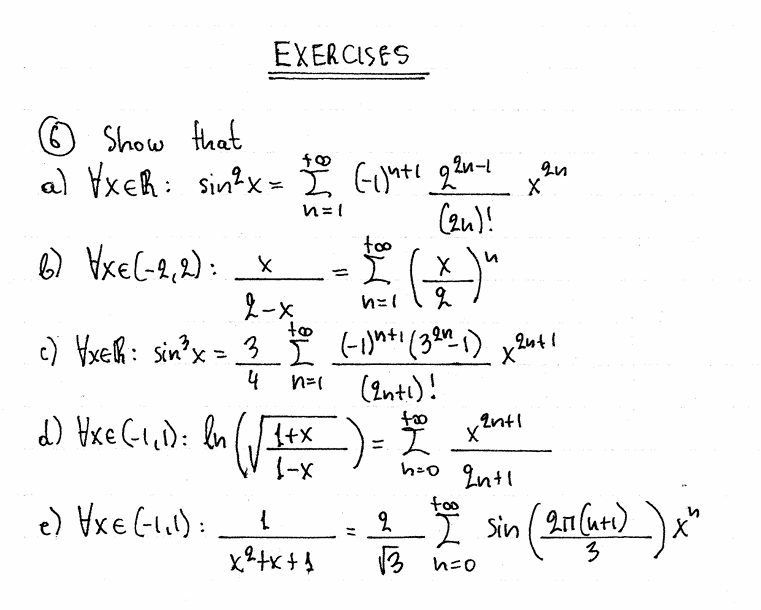 EXERCISES
⑥ Show that
a) ∀x∈ℝ: sin²x = Σ_{n=1}^{+∞} (-1)^{n+1} \frac{2^{2n-1}}{(2n)!} x^{2n}
b) ∀x∈(-2,2): \frac{x}{2-x} = Σ_{n=1}^{+∞} (\frac{x}{2})^n
c) ∀x∈ℝ: sin³x = \frac{3}{4} Σ_{n=1}^{+∞} \frac{(-1)^{n+1}(3^{2n}-1)}{(2n+1)!} x^{2n+1}
d) ∀x∈(-1,1): ln(\sqrt{\frac{1+x}{1-x}}) = Σ_{n=0}^{+∞} \frac{x^{2n+1}}{2n+1}
e) ∀x∈(-1,1): \frac{1}{x²+x+1} = \frac{2}{\sqrt{3}} Σ_{n=0}^{+∞} sin(\frac{2π(n+1)}{3}) x^n